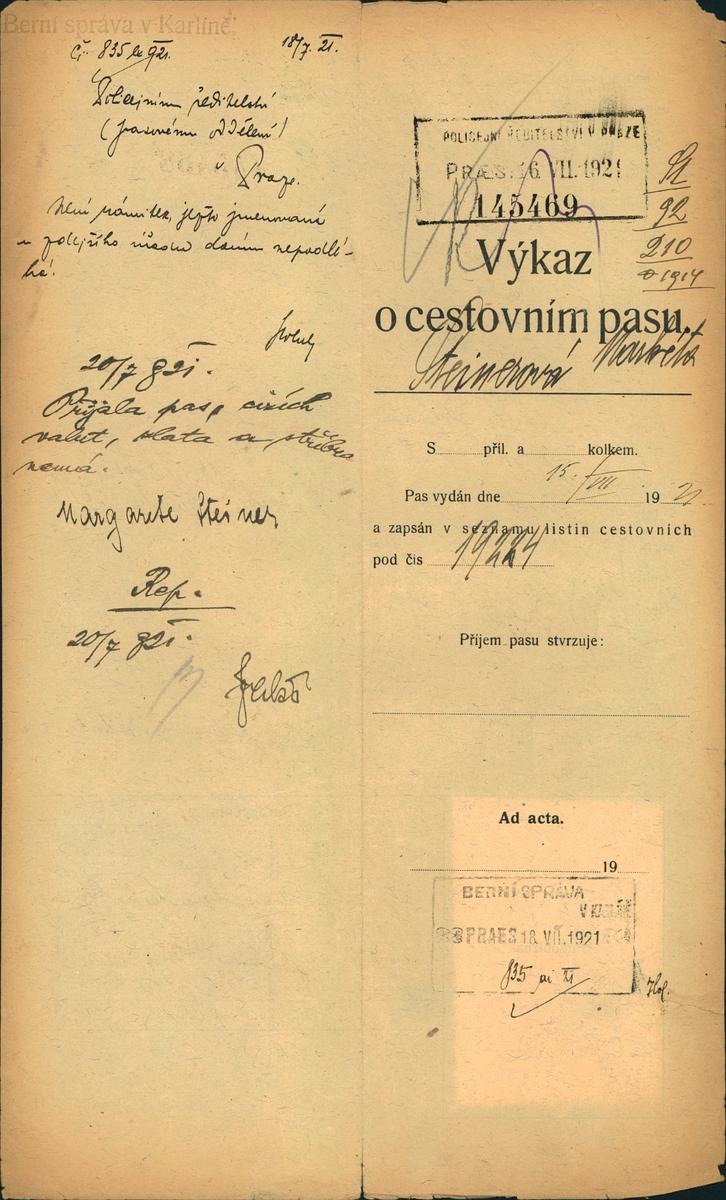 Berní správa v Karlíně
18/7. 21.
Policejnímu ředitelství
(pasovému oddělení)
v Praze.
Není námitek, jmenovaná
u zdejšího úřadu daním nepodlé-
há.
20/7 921.
Přijala pas, cizích
valut, zlata a stříbra
nemá.
Margarete Steiner
Rep.
20/7 921.
POLICEJNÍ ŘEDITELSTVÍ V PRAZE
PRÆS. 16. VII. 1921
145469
St
92
210
1914
Výkaz
o cestovním pasu.
Steinerová Markéta
S příl. a kolkem.
Pas vydán dne 15. VII 1921
a zapsán v seznamu listin cestovních
pod čís 19224
Příjem pasu stvrzuje:
Ad acta.
19
BERNÍ SPRÁVA
V KARLÍNĚ
PRAES 18. VII. 1921
835